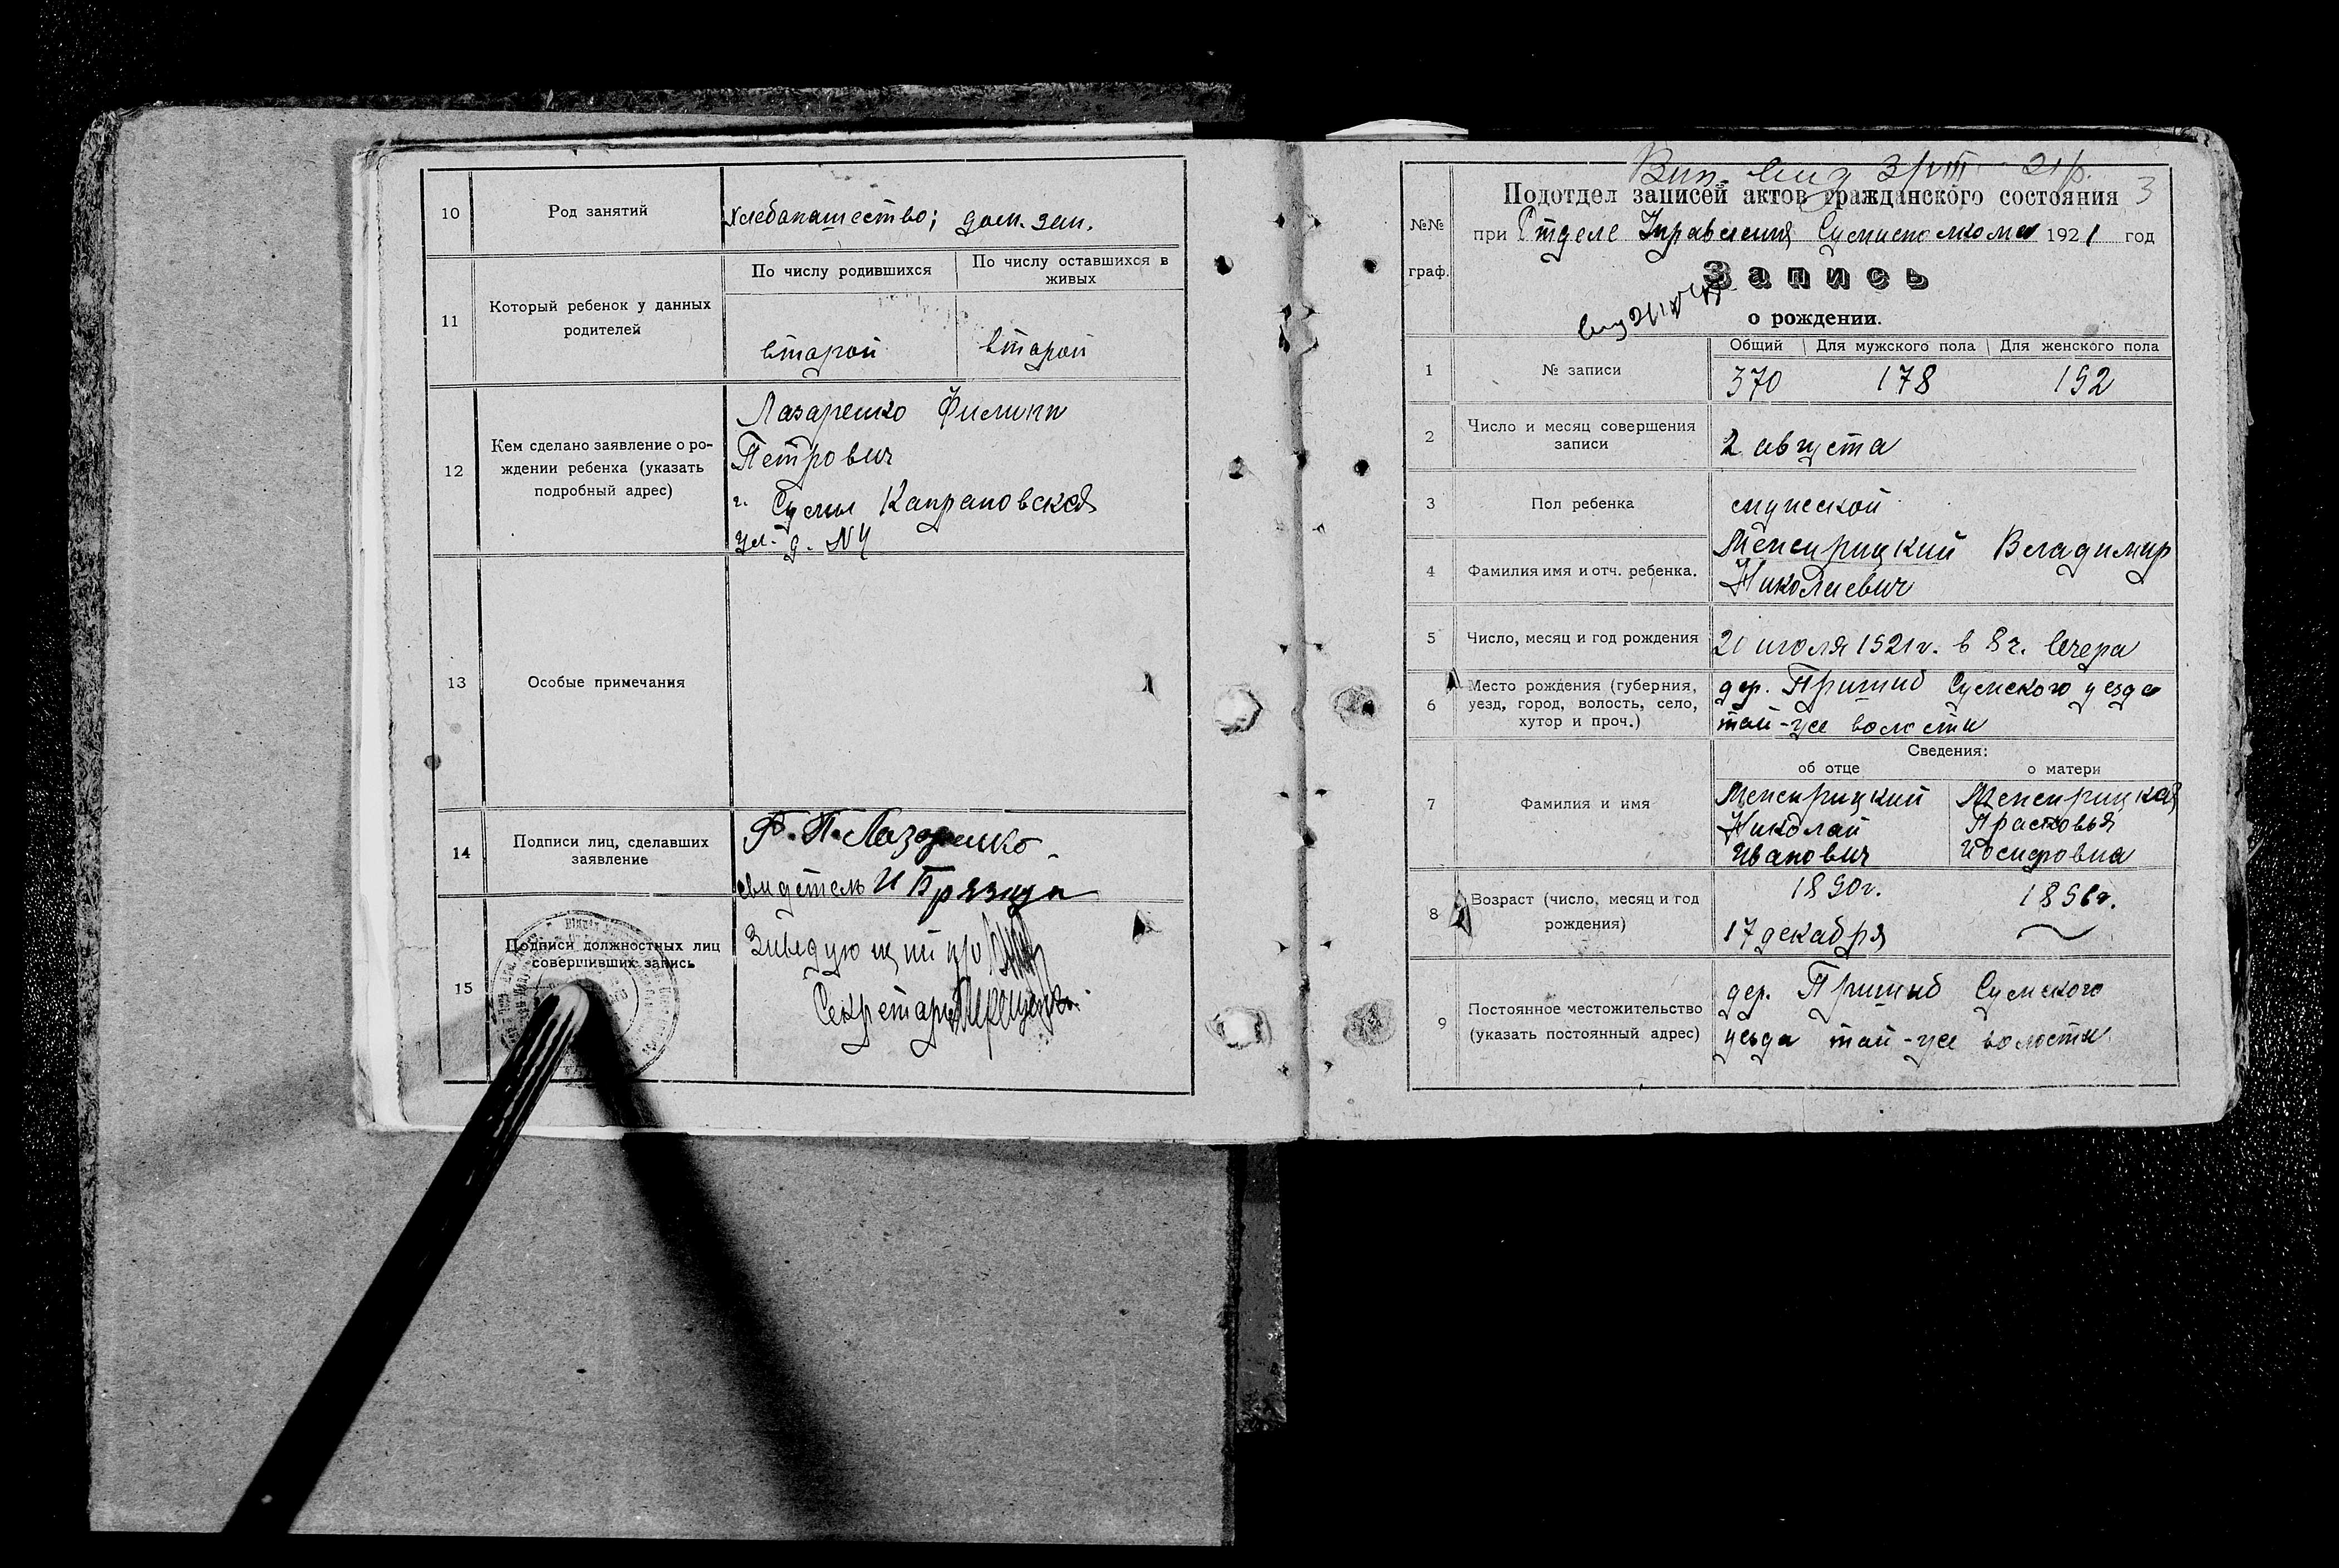 10
Род занятий
хлебопашество; дом. зан.
11
Который ребенок у данных
родителей
По числу родившихся
По числу оставшихся в
живых
второй
второй
12
Кем сделано заявление о ро-
ждении ребенка (указать
подробный адрес)
Лазаренко Филипп
Петрович
г. Сумы
ул. д. №4
13
Особые примечания
14
Подписи лиц, сделавших
заявление
Ф. П. Лазоренко
свидетель И
15
Подписи должностных лиц
совершивших запись
Заведующий п/о
Секретарь
3
№№
граф.
Подотдел записей актов гражданского состояния
при Отделе Управления Сумисполкома 1921 год
Запись
о рождении.
1
№ записи
Общий
Для мужского пола
Для женского пола
370
178
192
2
Число и месяц совершения
записи
2 августа
3
Пол ребенка
мужской
4
Фамилия имя и отч. ребенка.
Межирицкий Владимир
Николаевич
5
Число, месяц и год рождения
20 июля 1921 г. в 8 ч. вечера
6
Место рождения (губерния,
уезд, город, волость, село,
хутор и проч.)
дер. Пришиб Сумского уезда
волости
7
Фамилия и имя
Сведения:
об отце
о матери
Межирицкий
Николай
Иванович
Межирицкая
Прасковья
Иосифовна
8
Возраст (число, месяц и год
рождения)
1890 г.
17 декабря
1896 г.
9
Постоянное местожительство
(указать постоянный адрес)
дер. Пришиб Сумского
уезда волости